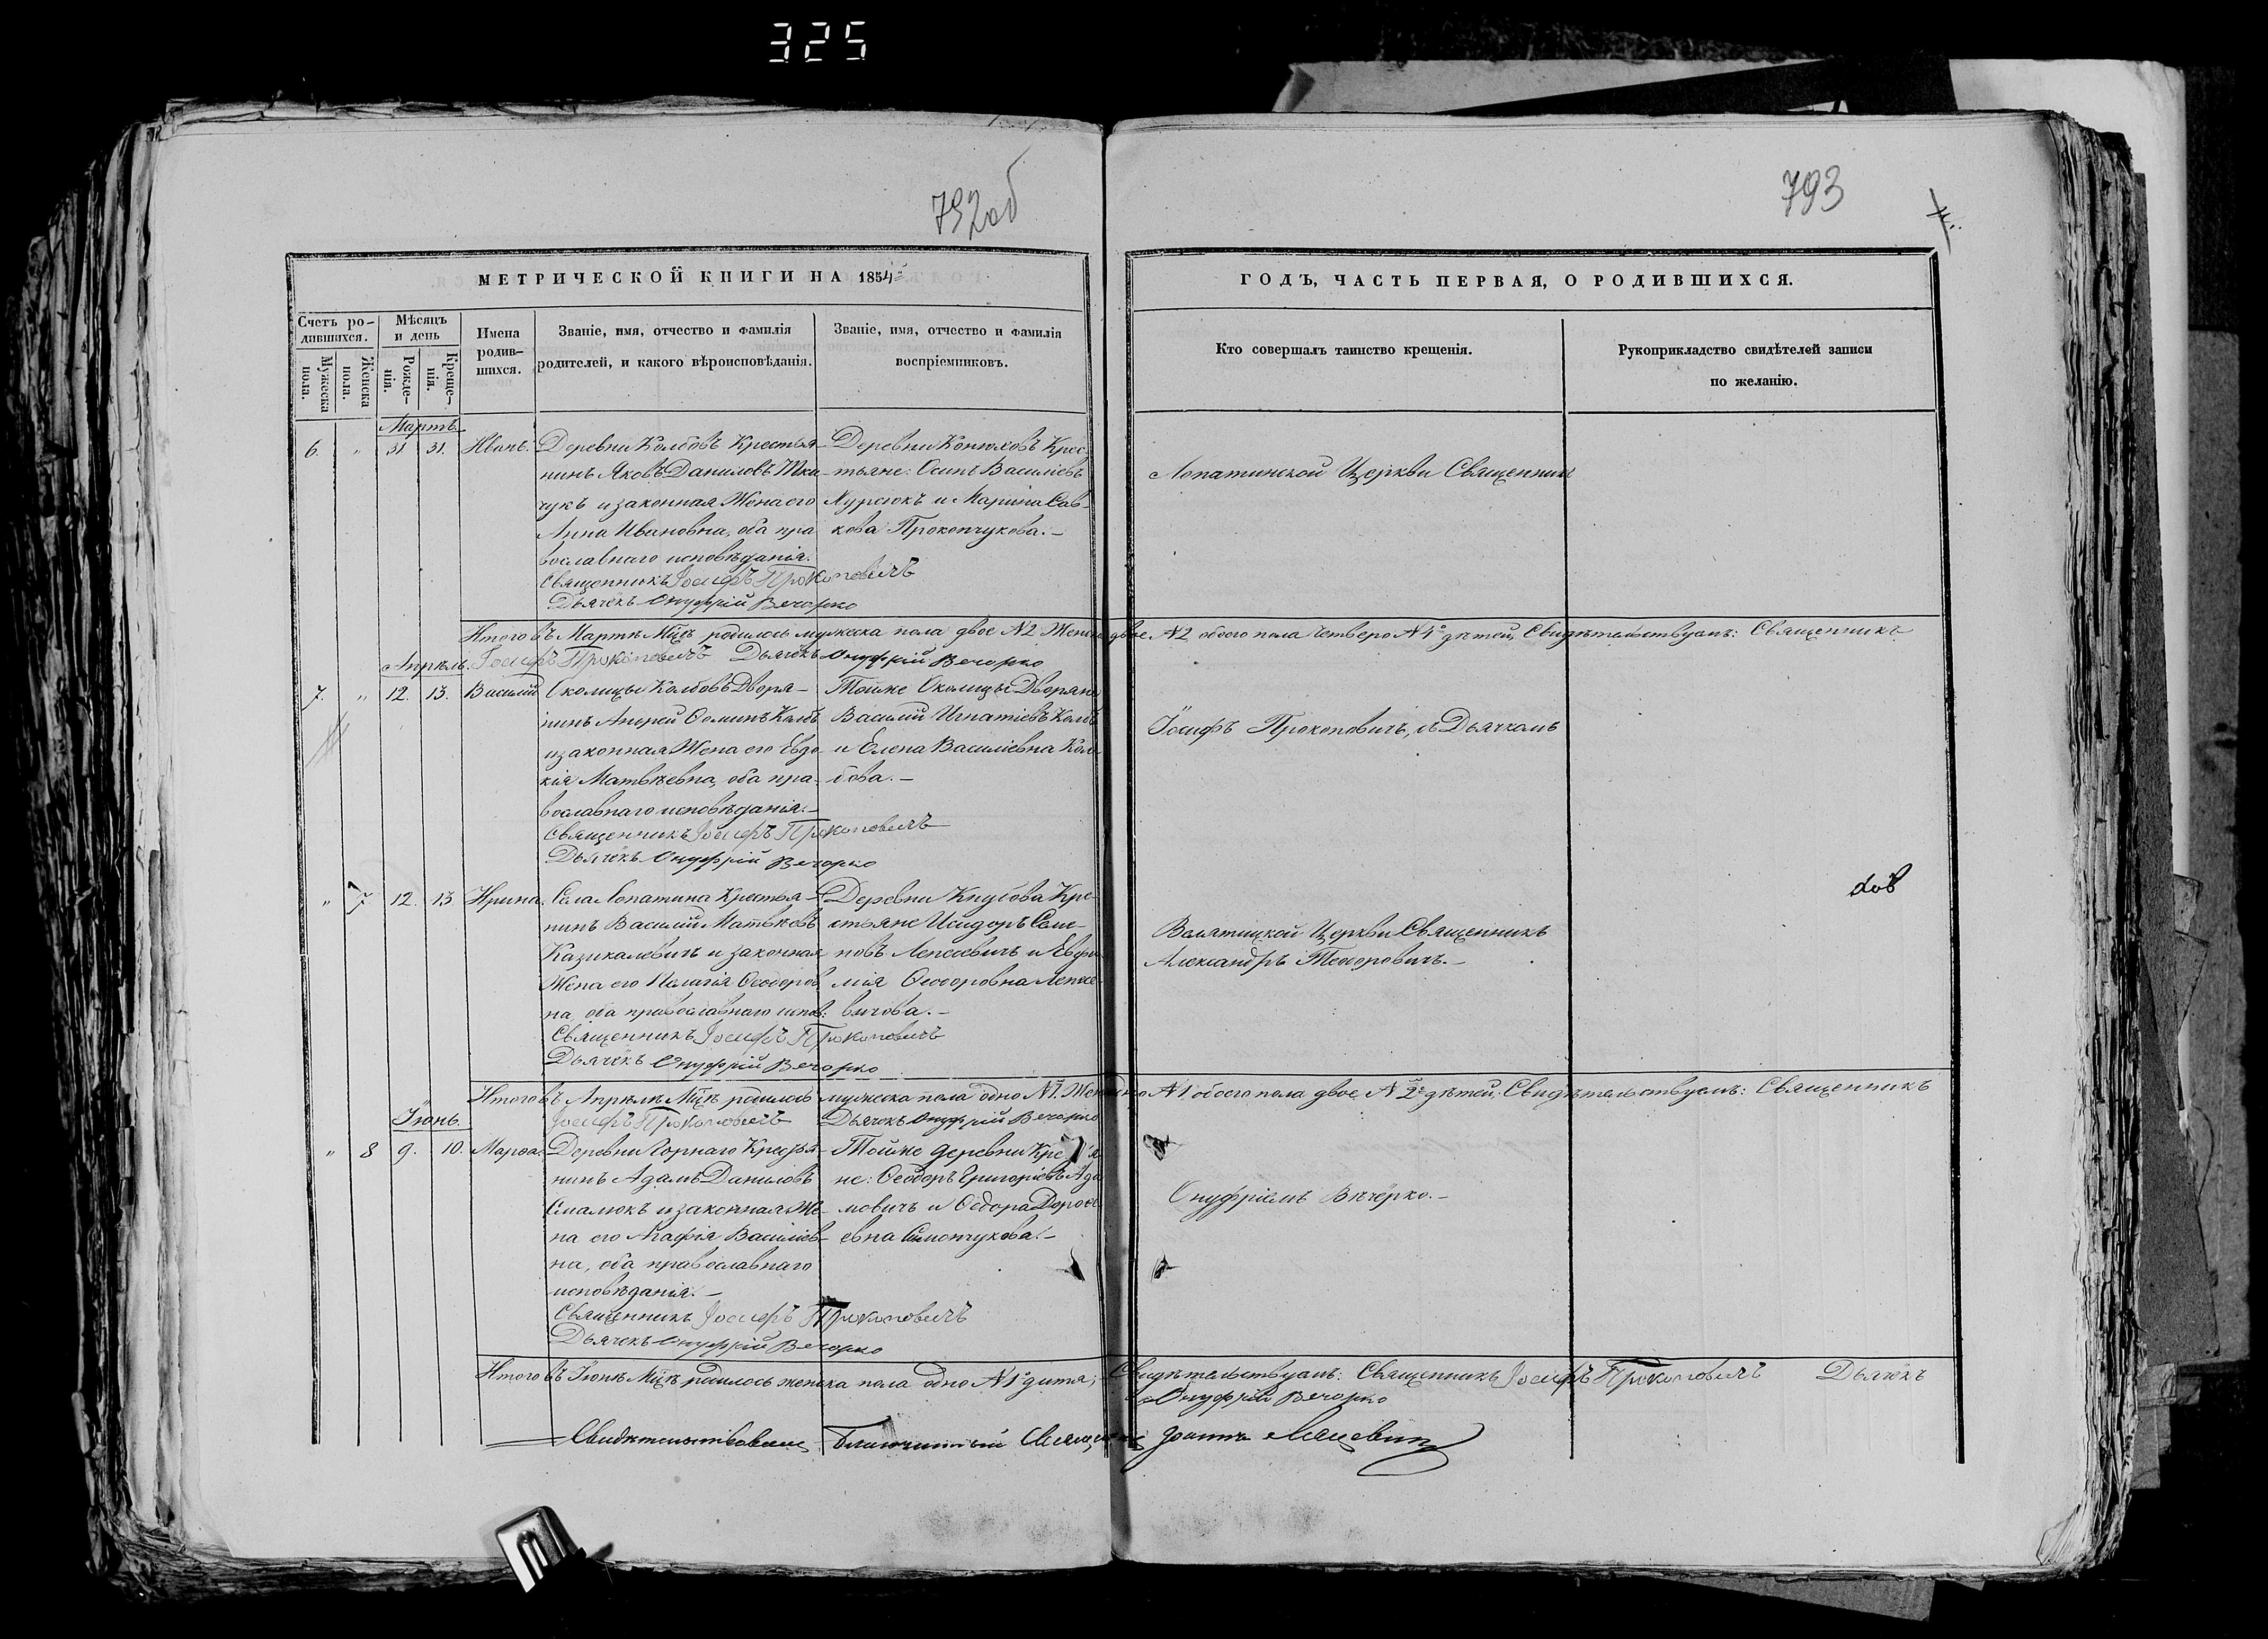 325
792об
793
МЕТРИЧЕСКОЙ КНИГИ НА 1854й
ГОДЪ, ЧАСТЬ ПЕРВАЯ, О РОДИВШИХСЯ.
Счетъ ро-
дившихся.
Мужеска
пола.
Женска
пола.
Мѣсяцъ
и день
Рожде-
нія.
Креще-
нія.
Имена
родив-
шихся.
Званіе, имя, отчество и фамилія
родителей, и какого вѣроисповѣданія.
Званіе, имя, отчество и фамилія
воспріемниковъ.
Кто совершалъ таинство крещенія.
Рукоприкладство свидѣтелей записи
по желанію.
Мартъ
6. " 31. 31. Иванъ.
Деревни Колбовъ Крестья-
нинъ Яковъ Даниловъ Тка-
чукъ и законная Жена его
Анна Ивановна, оба пра-
вославнаго исповѣданія.
Священникъ Іосифъ Прокоповичъ
Дьячекъ Онуфрій Вечорко
Деревни Конюховъ Крес-
тьяне: Осипъ Василіевъ
и Марина Сав-
кова Прокопчукова.-
Лопатинской Церкви Священник
Итого въ Мартѣ Мцѣ родилось мужеска пола двое №2 Женска двое №2 обоего пола четверо №4 дѣтей, Свидѣтельствуемъ: Священникъ
Іосифъ Прокоповичъ Дьячекъ Онуфрій Вечорко
Апрѣль.
7. " 12. 13. Василій
Околицы Колбовъ Дворя-
нинъ Андрей Ѳоминъ Колбъ
и законная Жена его Евдо-
кія Матвѣевна, оба пра-
вославнаго исповѣданія.-
Священникъ Іосифъ Прокоповичъ
Дьячекъ Онуфрій Вечорко
Тойже Околицы Дворяне
Василій Игнатіевъ Колбъ
и Елена Василіевна Кол-
бова.-
Іосифъ Прокоповичъ, съ Дьячкомъ
" 7 12. 13 Ирина.
Села Лопатина Крестья-
нинъ Василій Матвѣевъ
Казикалевичъ и законная
Жена его Пелагія Ѳеодоров-
на, оба православнаго испов:
Священникъ Іосифъ Прокоповичъ
Дьячекъ Онуфрій Вечорко
Деревни Кнубова Кре-
стьяне Исидоръ Семе-
новъ Лемешевичъ и Евфи-
мія Ѳеодоровна Лемеше-
вичова.-
Велятицкой Церкви Священникъ
Александръ Теодоровичъ.-
Итого въ Апрѣлѣ Мцѣ родилось мужеска пола одно №1. Женска одно №1 обоего пола двое №2 дѣтей; Свидѣтельствуемъ: Священникъ
Іосифъ Прокоповичъ Дьячекъ Онуфрій Вечорко
Іюнь.
" 8 9. 10. Марѳа.
Деревни Горнаго Крестья-
нинъ Адамъ Даниловъ
и законная Же-
на его Агафія Василіев-
на, оба православнаго
исповѣданія.-
Священникъ Іосифъ Прокоповичъ
Дьячекъ Онуфрій Вечорко
Тойже деревни Кре
не: Ѳеодоръ Григоріевъ Ада-
мовичъ и Ѳедора Дороѳе-
евна Симончукова.-
Онуфріемъ Вечёрко.-
Итого въ Іюнѣ Мцѣ родилось женска пола одно №1 дитя; Свидѣтельствуемъ: Священникъ Іосифъ Прокоповичъ Дьячекъ
Онуфрій Вечорко
Свидѣтельствовалъ Благочинный Священникъ Іоаннъ